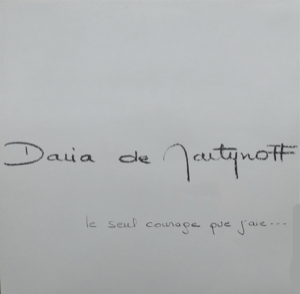 Daria de Martynoff
le seul courage que j'aie...